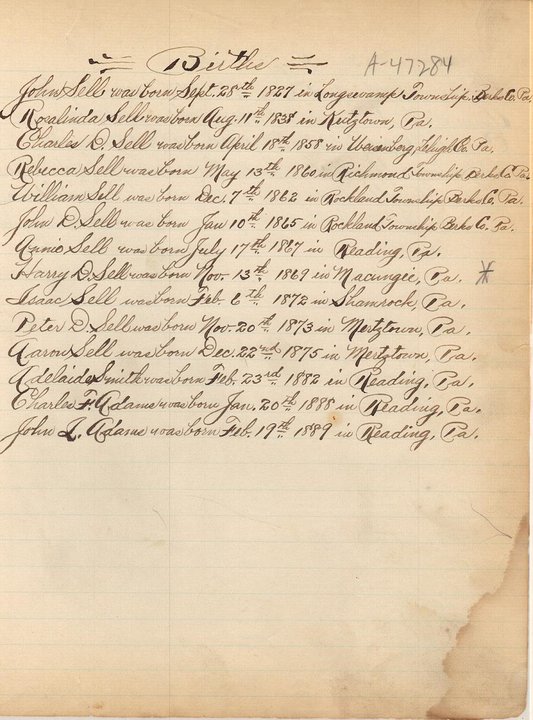 Births
A-47284
John Sell was born Sept. 28th 1827 in Longswamp Township, Berks Co, Pa.
Rosalinda Sell was born Aug. 11th 1838 in Kutztown, Pa.
Charles D. Sell was born April 18th 1858 in Weisenberg Lehigh Co. Pa.
Rebecca Sell was born May 13th 1860 in Richmond Township Berks Co Pa.
William Sell was born Dec. 7th 1862 in Rockland Township Berks Co, Pa.
John D. Sell was born Jan 10th 1865 in Rockland Township Berks Co. Pa.
Annie Sell was born July 17th 1867 in Reading, Pa.
Harry D. Sell was born Nov. 13th 1869 in Macungie, Pa. *
Isaac Sell was born Feb. 6th 1872 in Shamrock, Pa.
Peter D. Sell was born Nov. 20th 1873 in Mertztown, Pa.
Aaron Sell was born Dec. 22nd 1875 in Mertztown, Pa.
Adelaide Smith was born Feb. 23rd 1882 in Reading, Pa.
Charles F. Adams was born Jan. 20th 1888 in Reading, Pa.
John L. Adams was born Feb. 19th 1889 in Reading, Pa.